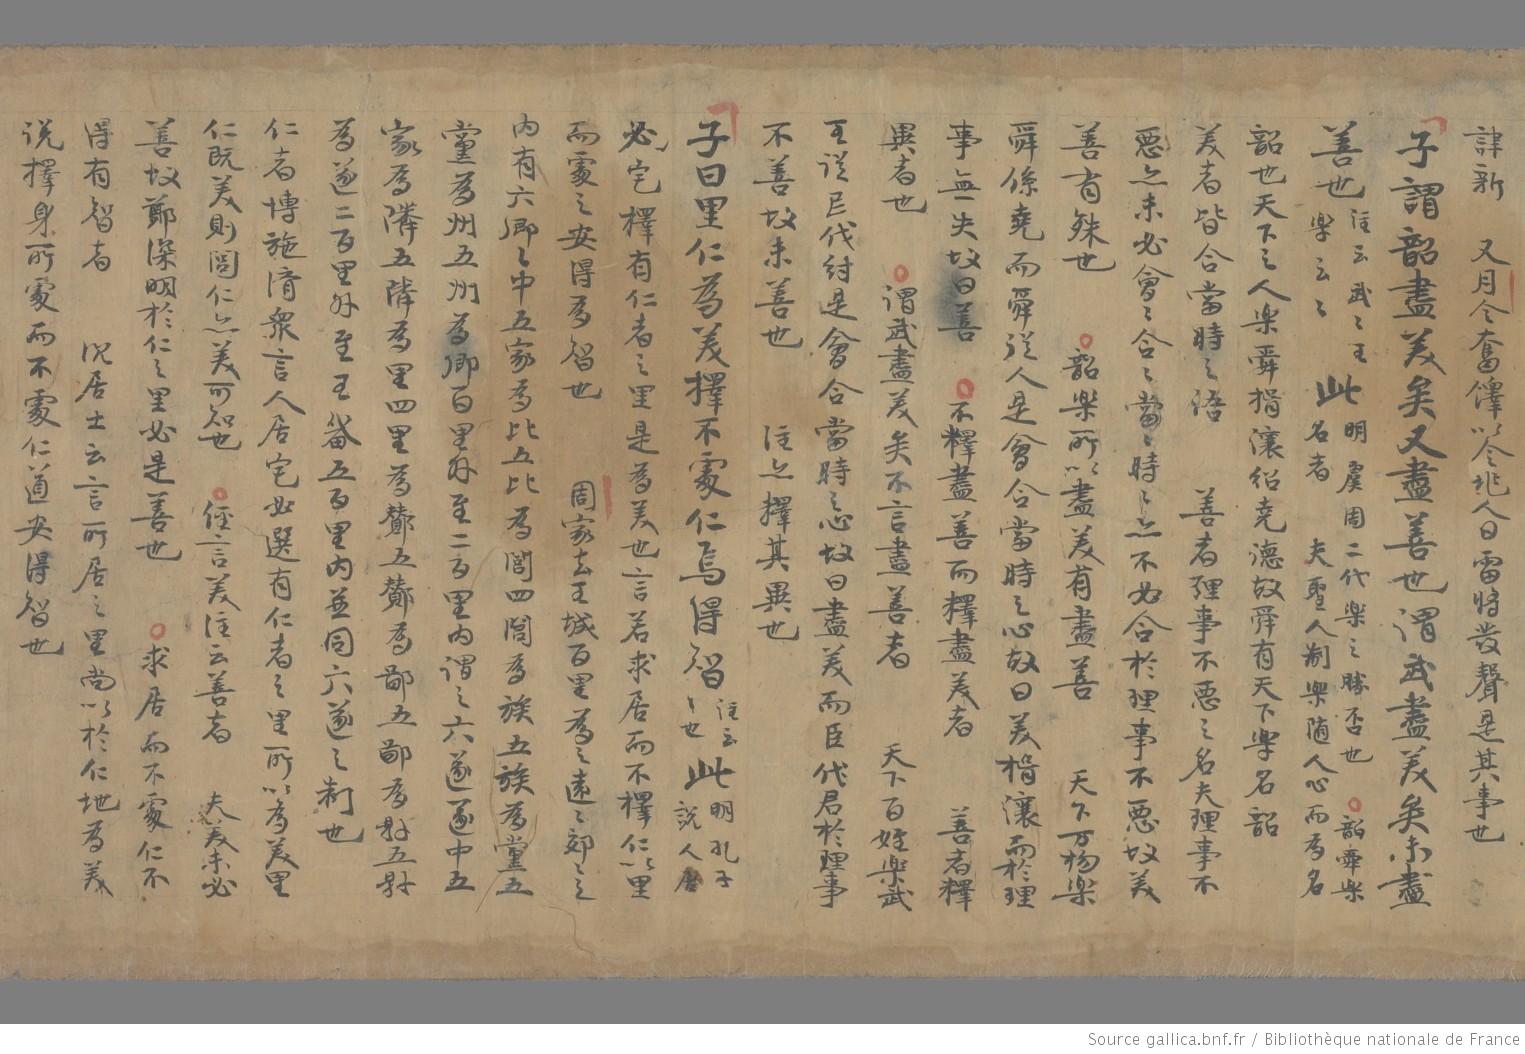 肆新　又月令奮鐸以令兆人曰雷將發聲是其事也
子謂韶盡美矣又盡善也謂武盡美矣未盡
善也注云武〻王樂云〻此明虞周二代樂之勝否也　韶舜樂名者　夫聖人制樂隨人心而為名
韶也天下之人樂舜揖讓紹堯德故舜有天下樂名韶
美者皆合當時之 　善者理事不惡之名夫理事不
惡亦未必會〻合〻當〻時〻亦不必合於理事不惡故美
善有殊也　韶樂所以盡美有盡善　天下万物樂
舜係堯而舜從人是會合當時之心故曰美揖讓而於理
事無一失故曰善　不釋盡善而釋盡美者　善者釋
異者也　謂武盡美矣不言盡善者　天下百姓樂武
王從 代紂是會合當時之心故曰盡美而臣代君於理事
不善故未善也　注亦擇其異也
子曰里仁為美擇不處仁焉得智注云〻也此明孔子說人居
必宅擇有仁者之里是為美也言若求居而不擇仁以里
而處之安得為智也　周家去王城百里為之遠〻郊〻之
內有六鄉〻中五家為比五比為閭四閭為族五族為黨五
黨為州五州為鄉百里外至二百里內謂之六遂遂中五
家為隣五隣為里四里為酇五酇為鄙五鄙為縣五縣
為遂二百里外至王畿五百里內並同六遂之制也
仁者博施濟眾言人居宅必選有仁者之里所以為美里
仁既美則閭仁亦美可知也　經言美注云善者　夫美未必
善故鄭深明於仁之里必是善也　求居而不處仁不
得有智者　沈居士云言所居之里尚以於仁地為美
說擇身所處而不處仁道安得智也